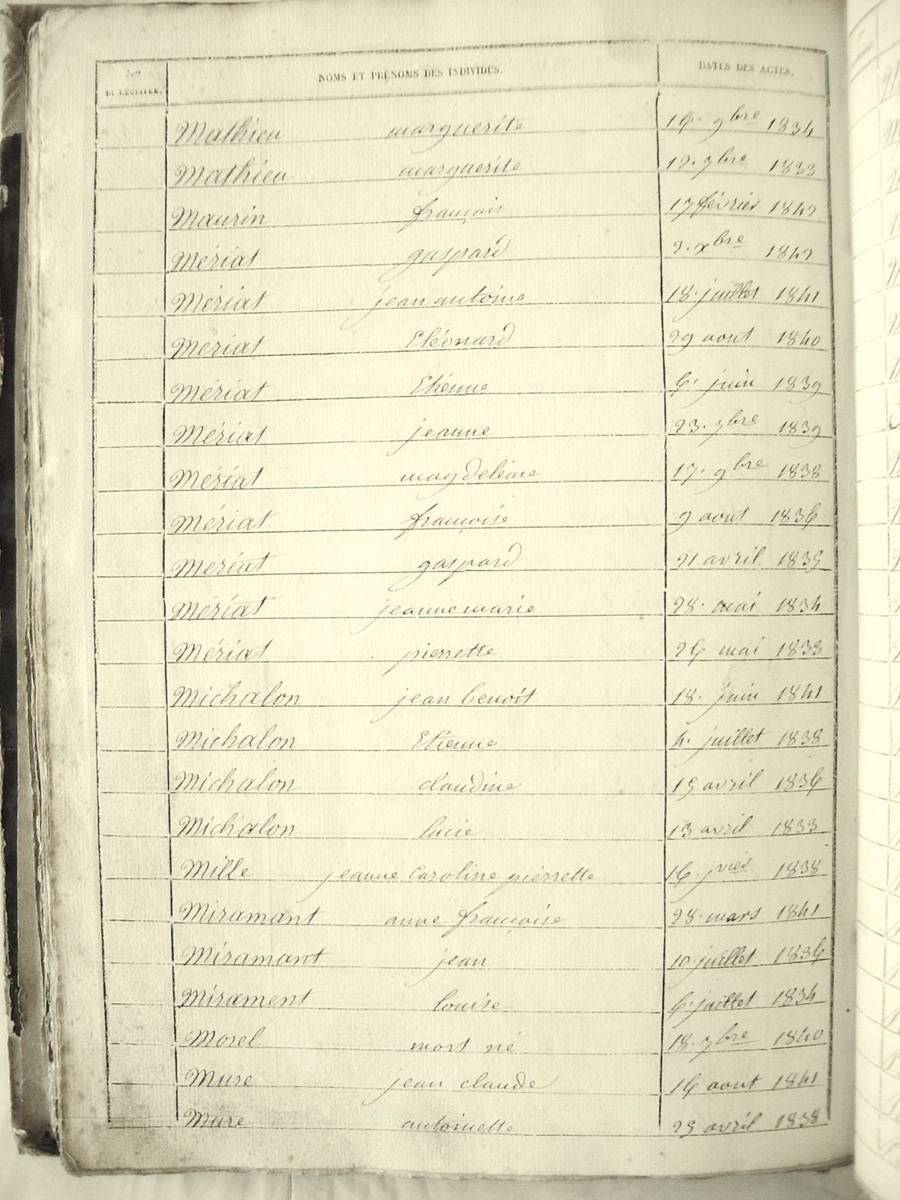 Nos DU REGISTRE. NOMS ET PRÉNOMS DES INDIVIDUS. DATES DES ACTES.
Mathieu marguerite 16. 9bre 1834
Mathieu marguerite 12. 7bre 1833
Maurin françois 17 février 1842
Mériat gaspard 2. xbre 1842
Mériat jean antoine 18. juillet 1841
Mériat Eléonard 29 aout 1840
Mériat Etienne 6. juin 1839
Mériat jeanne 23. 7bre 1839
Mériat magdeleine 17. 9bre 1838
Mériat françoise 9 aout 1836
Mériat gaspard 21 avril 1835
Mériat jeanne marie 28. mai 1834
Mériat pierrette 26 mai 1833
Michalon jean benoit 18. juin 1841
Michalon Etienne 4. juillet 1838
Michalon claudine 15 avril 1836
Michalon lucie 13 avril 1833
Mille jeanne Caroline pierrette 16. jvier 1838
Miramant anne françoise 28. mars 1841
Miramant jean 10 juillet 1836
Mirament louise 6. juillet 1834
Morel mort né 18. 7bre 1840
Mure jean claude 16 aout 1841
Mure antoinette 25 avril 1838